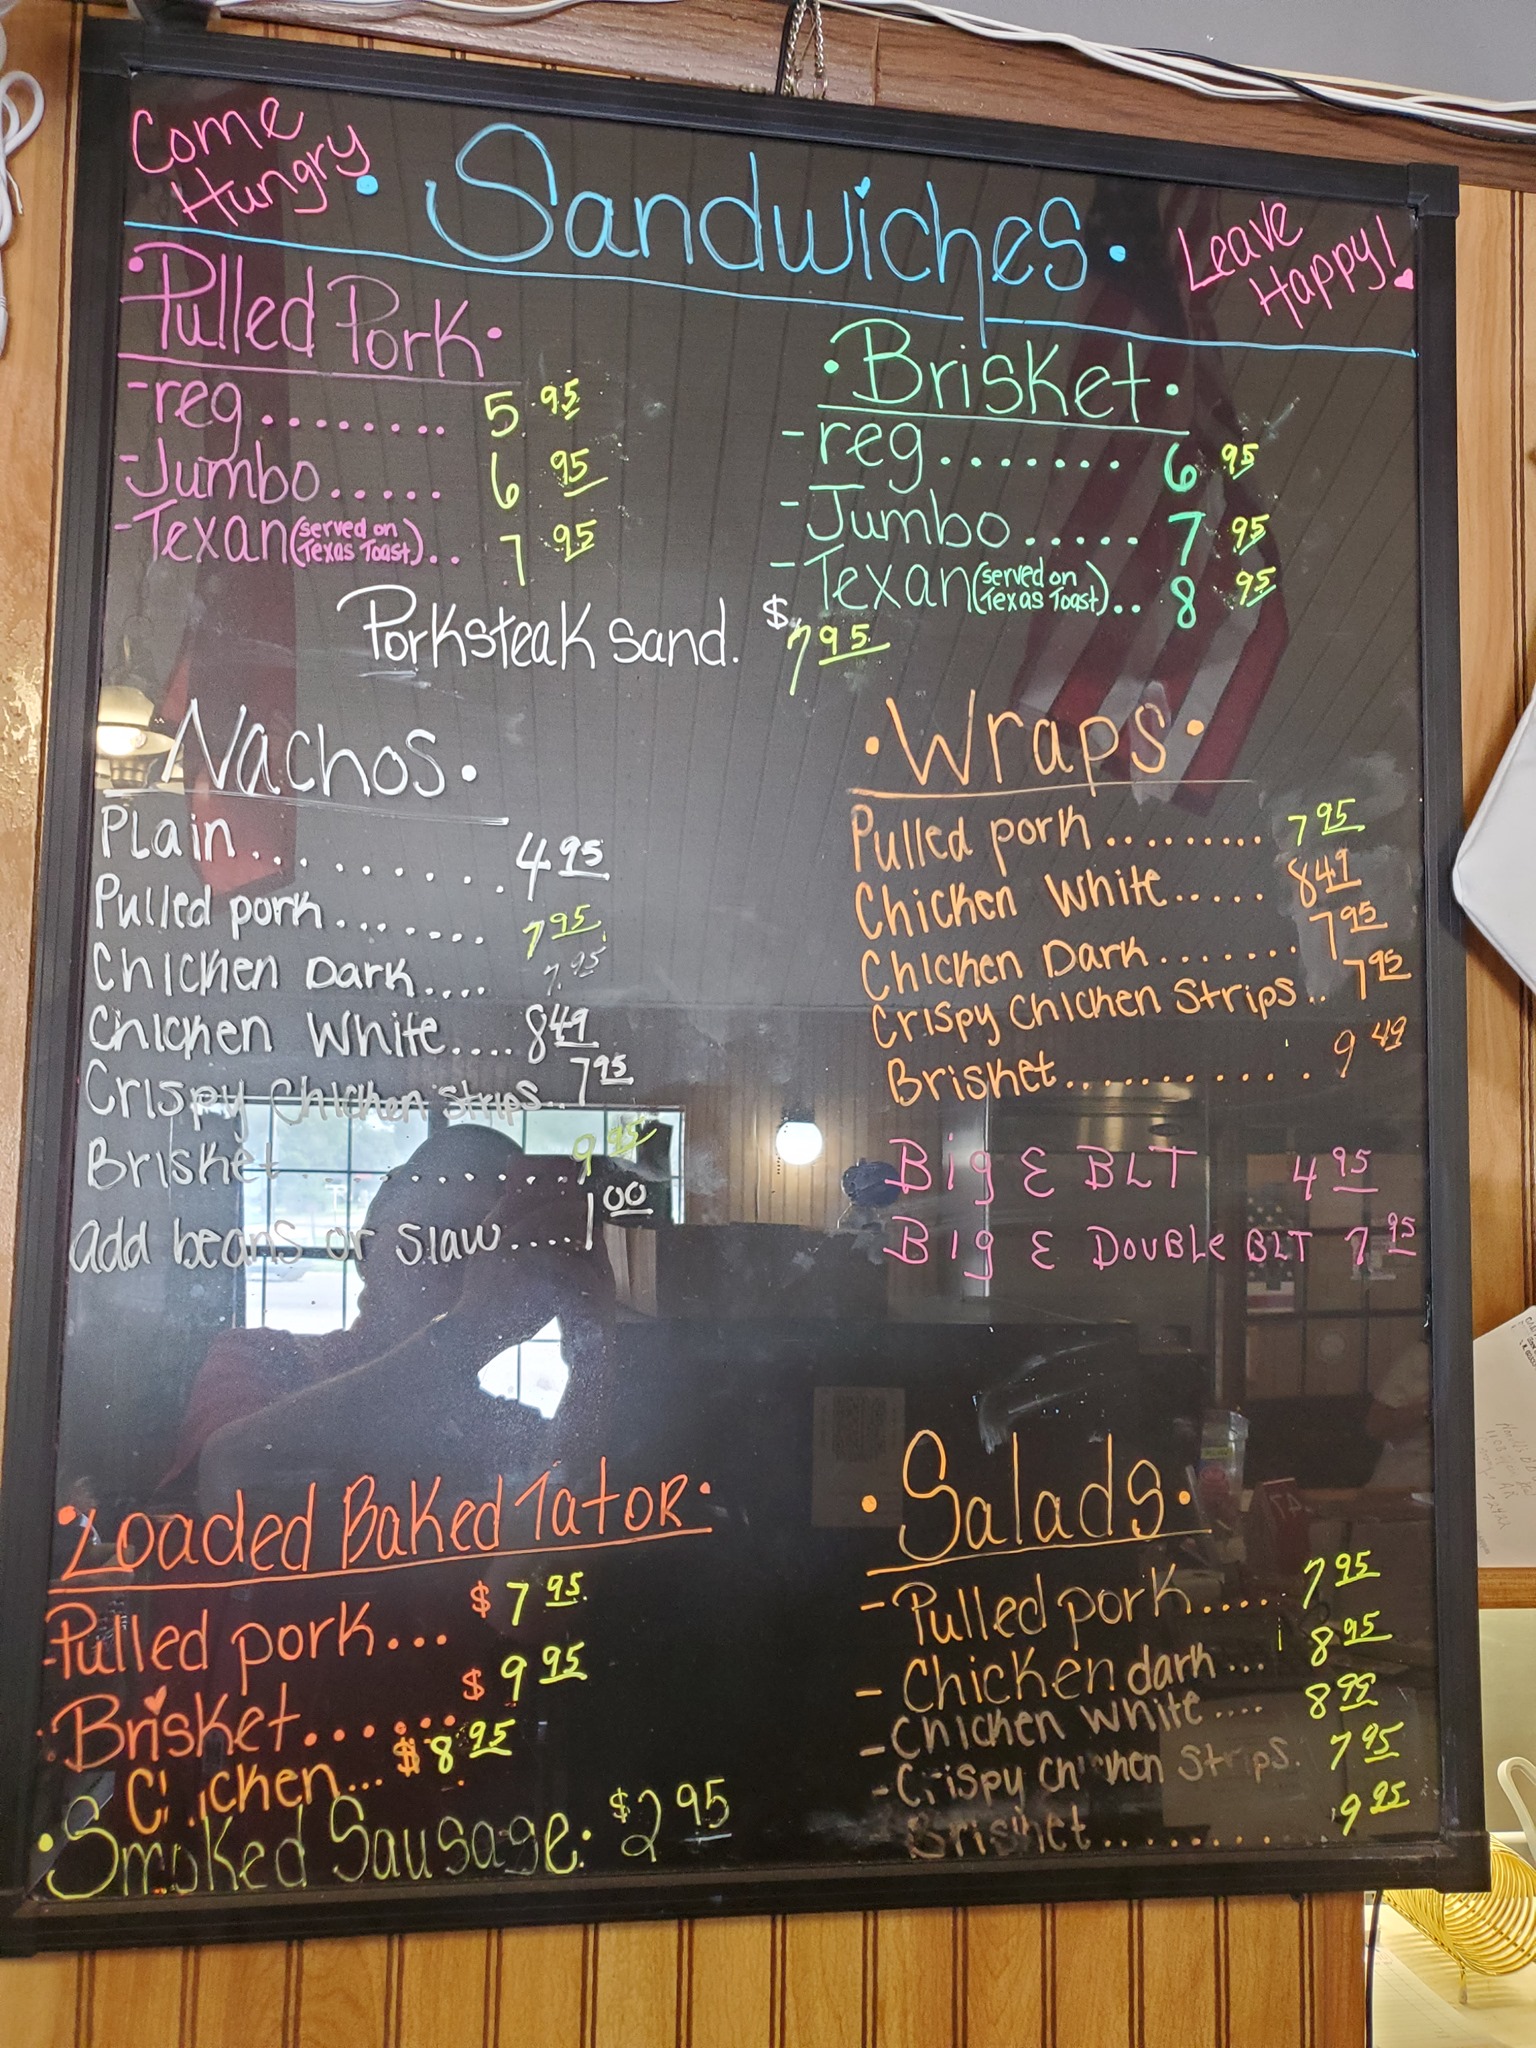 Come Hungry
• Sandwiches •
Leave Happy!
• Pulled Pork •
-reg........ 5.95
-Jumbo..... 6 95
-Texan (served on Texas Toast).. 7 95
• Brisket •
-reg....... 6 95
-Jumbo..... 7 95
-Texan (served on Texas Toast).. 8 95
Porksteak sand. $7.95
Nachos •
Plain......... 4 95
Pulled pork....... 7 95
Chicken Dark.... 7.95
Chicken White.... 8 49
Crispy Chicken Strips.. 7 95
Brisket........... 9 95
add beans or slaw.... 1 00
• Wraps •
Pulled pork......... 7 95
Chicken White..... 8 49
Chicken Dark....... 7 95
Crispy Chicken Strips.. 7 95
Brisket............ 9 49
Big E BLT 4 95
Big E Double BLT 7 95
• Loaded Baked Tator •
-Pulled pork... $7 95
Brisket...... $9 95
Chicken... $8 95
• Smoked Sausage: $2 95
• Salads •
- Pulled pork.... 7 95
- Chicken dark... 8 95
- Chicken White.... 8 99
- Crispy Chicken Strips. 7 95
- Brisket........... 9 95